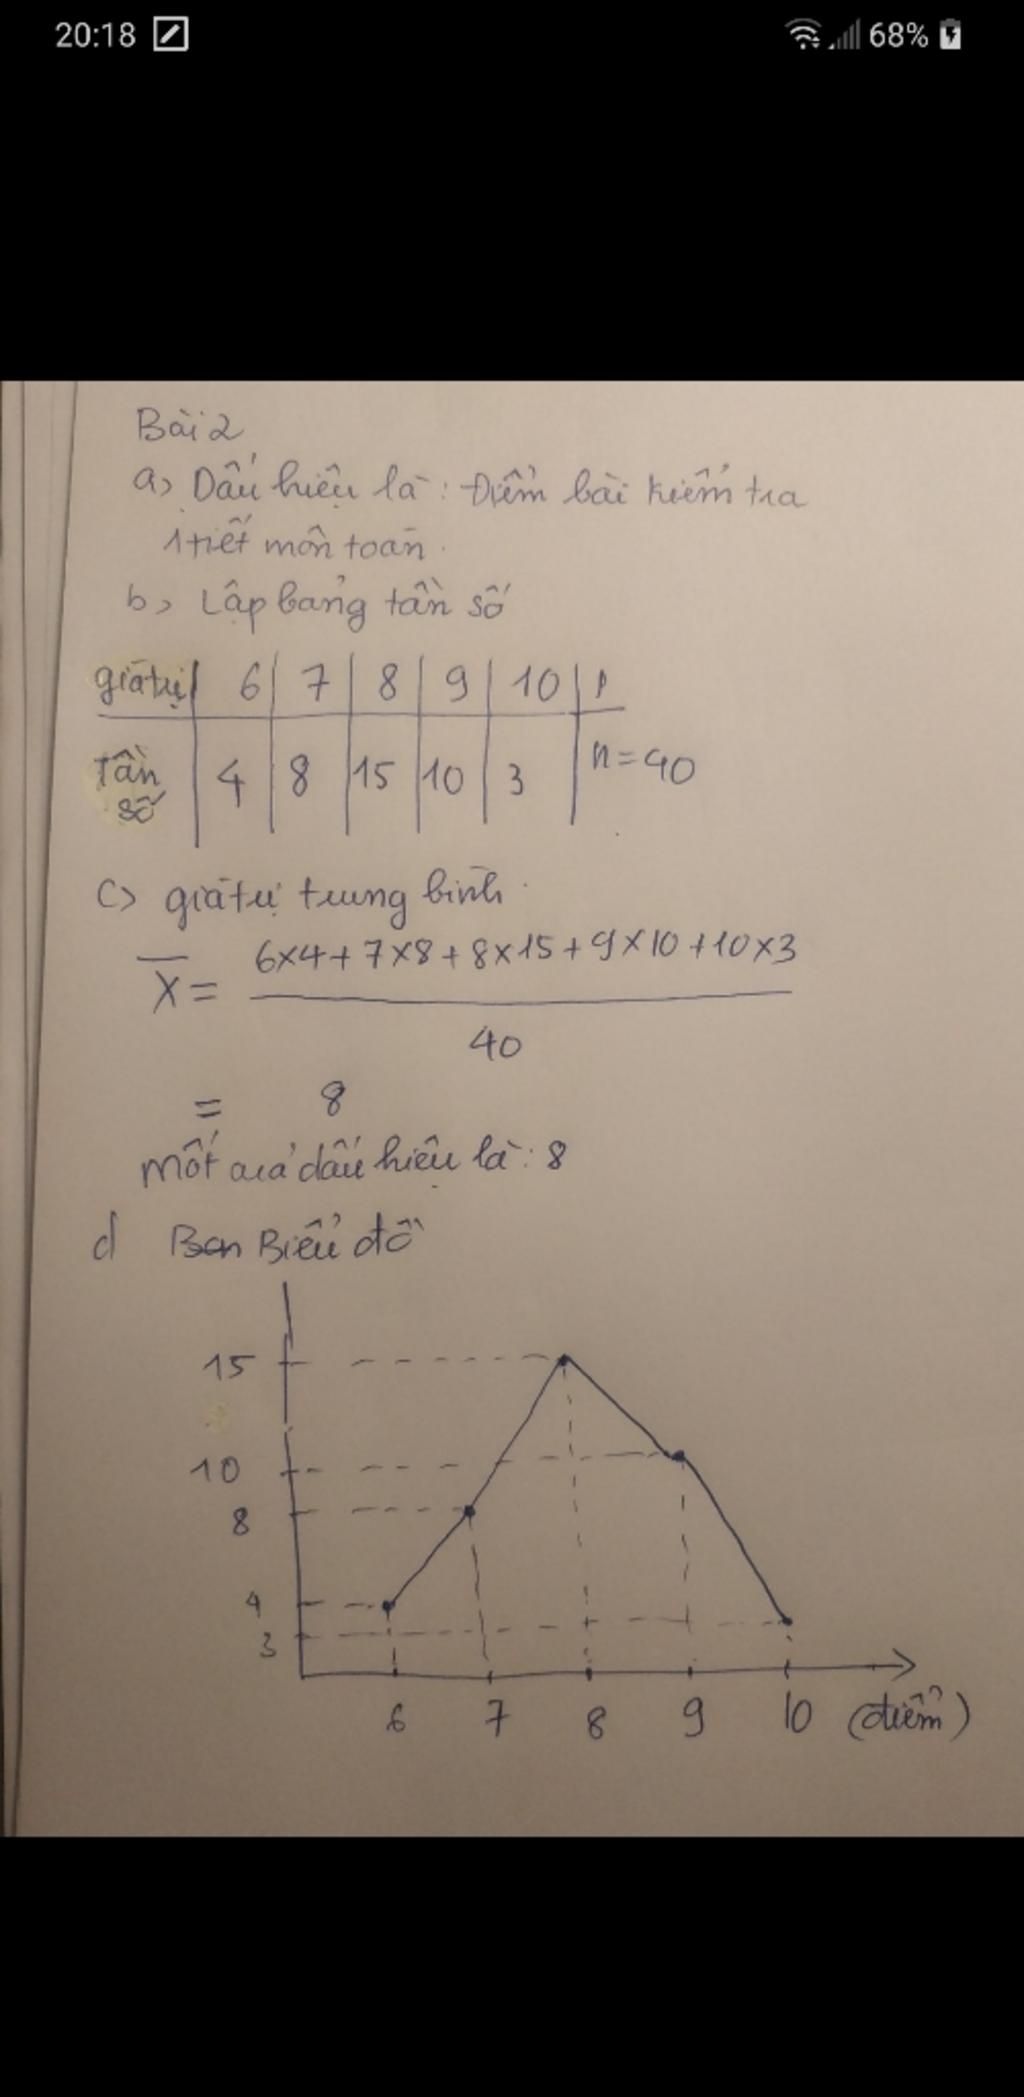 20:18 68%
Bài 2
a, Dấu hiệu là: Điểm bài kiểm tra
1 tiết môn toán.
b, Lập bảng tần số
giá trị 6 7 8 9 10
Tần số 4 8 15 10 3 n = 40
c) giá trị trung bình.
X̅ = (6x4 + 7x8 + 8x15 + 9x10 + 10x3) / 40
= 8
Mốt của dấu hiệu là: 8
d Biểu đồ
15
10
8
4
3
6 7 8 9 10 (điểm)